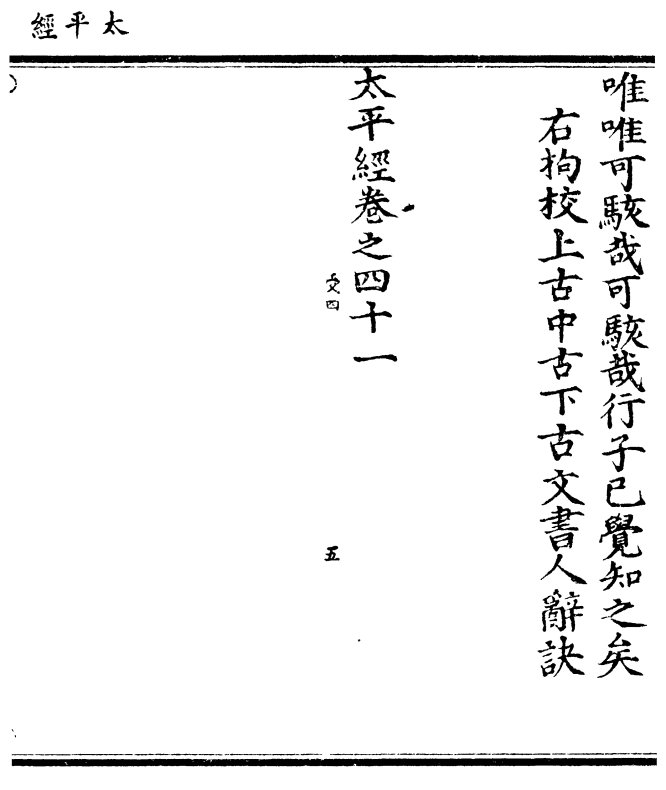 太平經
唯唯可駭哉可駭哉行子已覺知之矣
右拘校上古中古下古文書人辭訣
太平經卷之四十一
父四
五